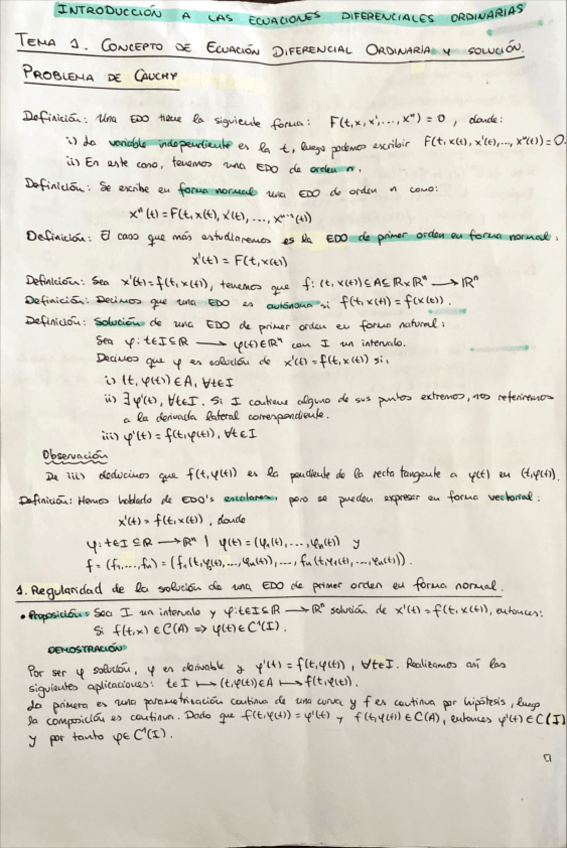 INTRODUCCIÓN A LAS ECUACIONES DIFERENCIALES ORDINARIAS
TEMA 1. CONCEPTO DE ECUACIÓN DIFERENCIAL ORDINARIA Y SOLUCIÓN.
PROBLEMA DE CAUCHY
Definición: Una EDO tiene la siguiente forma: F(t,x,x',...,xⁿ) = 0, donde:
i) La variable independiente es la t, luego podemos escribir F(t,x(t),x'(t),...,xⁿ(t))=0.
ii) En este caso, tenemos una EDO de orden n.
Definición: Se escribe en forma normal una EDO de orden n como:
xⁿ(t) = F(t,x(t),x'(t),...,xⁿ⁻¹(t))
Definición: El caso que más estudiaremos es la EDO de primer orden en forma normal:
x'(t) = F(t,x(t))
Definición: Sea x'(t)=f(t,x(t)), tenemos que f:(t,x(t))∈A⊆ℝxℝⁿ → ℝⁿ
Definición: Decimos que una EDO es autónoma si f(t,x(t)) = f(x(t)).
Definición: Solución de una EDO de primer orden en forma natural:
Sea φ: t∈I⊆ℝ → φ(t)∈ℝⁿ con I un intervalo.
Decimos que φ es solución de x'(t)=f(t,x(t)) si:
i) (t,φ(t))∈A, ∀t∈I
ii) ∃φ'(t), ∀t∈I. Si I contiene alguno de sus puntos extremos, nos referiremos
a la derivada lateral correspondiente.
iii) φ'(t) = f(t,φ(t)), ∀t∈I
Observación
De iii) deducimos que f(t,φ(t)) es la pendiente de la recta tangente a φ(t) en (t,φ(t)).
Definición: Hemos hablado de EDO's escalares, pero se pueden expresar en forma vectorial:
x'(t) = f(t,x(t)), donde
φ: t∈I⊆ℝ → ℝⁿ | φ(t) = (φ₁(t),...,φₙ(t)) y
f = (f₁,...,fₙ) = (f₁(t,φ₁(t),...,φₙ(t)),..., fₙ(t,φ₁(t),...,φₙ(t))).
1. Regularidad de la solución de una EDO de primer orden en forma normal.
• Proposición: Sea I un intervalo y φ:t∈I⊆ℝ → ℝⁿ solución de x'(t) = f(t,x(t)), entonces:
Si f(t,x) ∈ C(A) => φ(t)∈C¹(I).
DEMOSTRACIÓN
Por ser φ solución, φ es derivable y φ'(t) = f(t,φ(t)), ∀t∈I. Realizamos así las
siguientes aplicaciones: t∈I ↦ (t,φ(t))∈A ↦ f(t,φ(t)).
La primera es una parametrización continua de una curva y f es continua por hipótesis, luego
la composición es continua. Dado que f(t,φ(t)) = φ'(t) y f(t,φ(t)) ∈ C(A), entonces φ'(t) ∈ C(I)
y por tanto φ∈C¹(I).